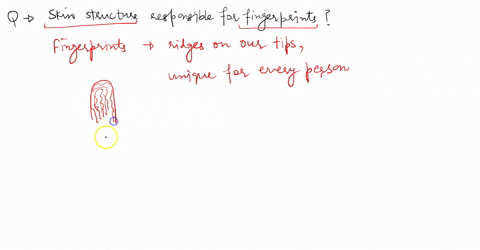 Q → Skin structure responsible for fingerprints ?
Fingerprints → ridges on our tips,
unique for every person